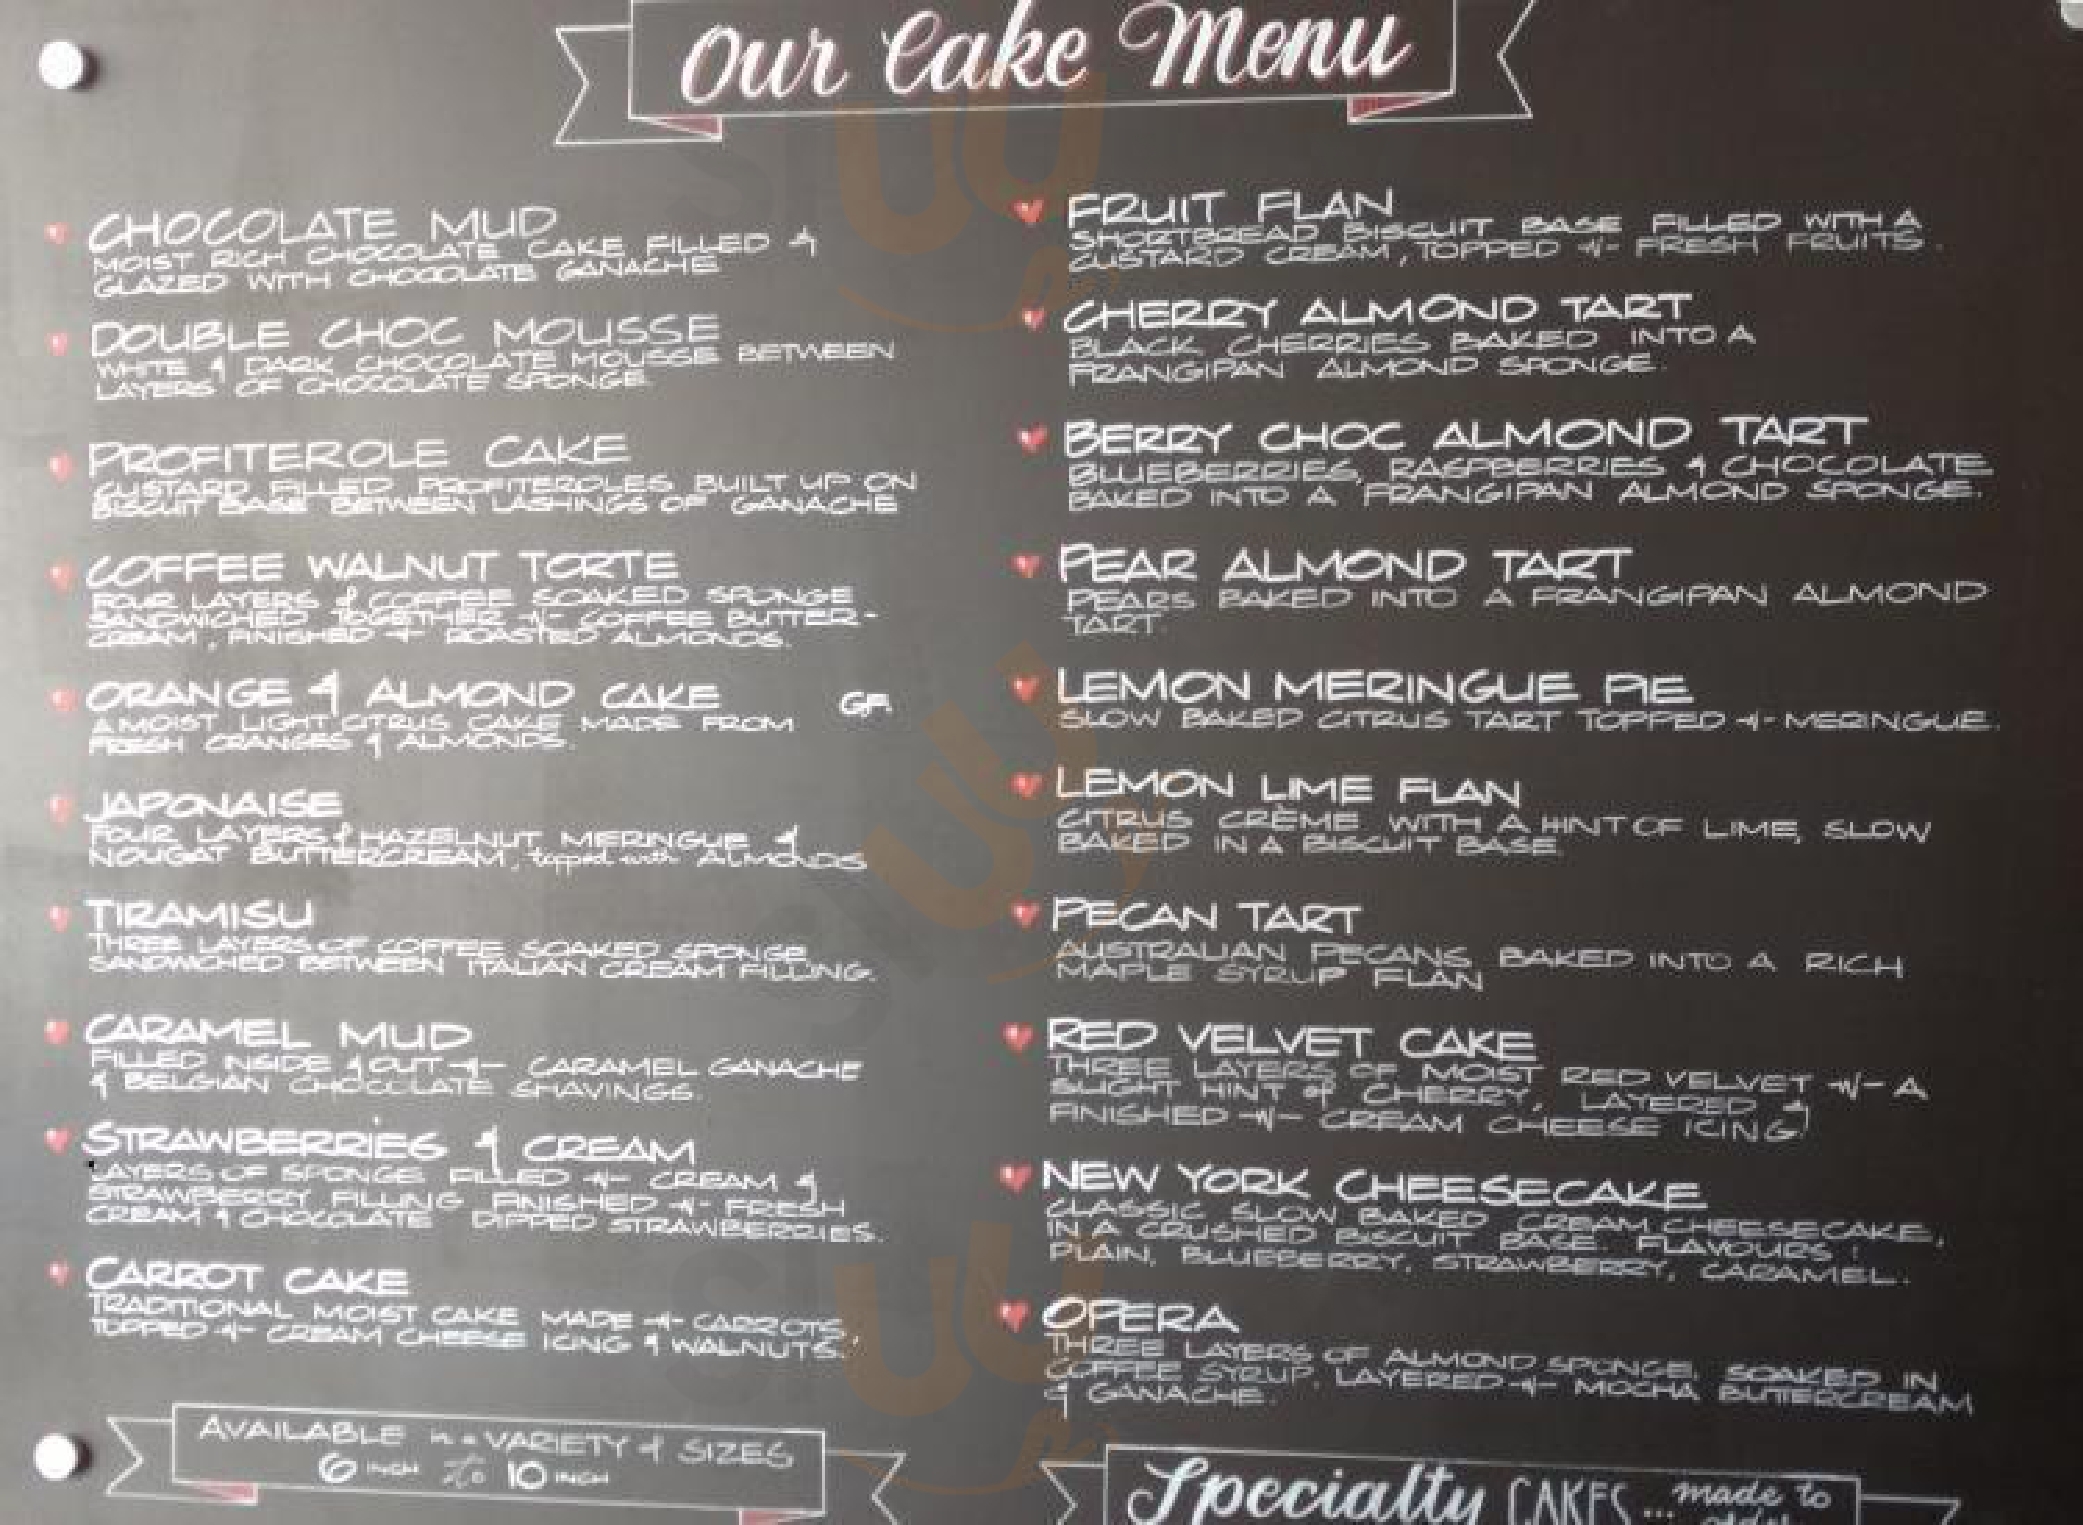 Our Cake Menu
CHOCOLATE MUD
MOIST RICH CHOCOLATE CAKE FILLED &
GLAZED WITH CHOCOLATE GANACHE
DOUBLE CHOC MOUSSE
WHITE & DARK CHOCOLATE MOUSSE BETWEEN
LAYERS OF CHOCOLATE SPONGE.
PROFITEROLE CAKE
CUSTARD FILLED PROFITEROLES BUILT UP ON
BISCUIT BASE BETWEEN LASHINGS OF GANACHE
COFFEE WALNUT TORTE
FOUR LAYERS of COFFEE SOAKED SPONGE
SANDWICHED TOGETHER -W- COFFEE BUTTER-
CREAM, FINISHED -W- ROASTED ALMONDS.
ORANGE & ALMOND CAKE GF.
A MOIST LIGHT CITRUS CAKE MADE FROM
FRESH ORANGES & ALMONDS.
JAPONAISE
FOUR LAYERS of HAZELNUT MERINGUE &
NOUGAT BUTTERCREAM, topped with ALMONDS
TIRAMISU
THREE LAYERS OF COFFEE SOAKED SPONGE
SANDWICHED BETWEEN ITALIAN CREAM FILLING.
CARAMEL MUD
FILLED INSIDE & OUT -W- CARAMEL GANACHE
& BELGIAN CHOCOLATE SHAVINGS.
STRAWBERRIES & CREAM
LAYERS OF SPONGE FILLED -W- CREAM &
STRAWBERRY FILLING FINISHED -W- FRESH
CREAM & CHOCOLATE DIPPED STRAWBERRIES.
CARROT CAKE
TRADITIONAL MOIST CAKE MADE -W- CARROTS,
TOPPED -W- CREAM CHEESE ICING & WALNUTS.
AVAILABLE in a VARIETY of SIZES
6 INCH to 10 INCH
FRUIT FLAN
SHORTBREAD BISCUIT BASE FILLED WITH A
CUSTARD CREAM, TOPPED -W- FRESH FRUITS.
CHERRY ALMOND TART
BLACK CHERRIES BAKED INTO A
FRANGIPAN ALMOND SPONGE.
BERRY CHOC ALMOND TART
BLUEBERRIES, RASPBERRIES & CHOCOLATE
BAKED INTO A FRANGIPAN ALMOND SPONGE.
PEAR ALMOND TART
PEARS BAKED INTO A FRANGIPAN ALMOND
TART.
LEMON MERINGUE PIE
SLOW BAKED CITRUS TART TOPPED -W- MERINGUE.
LEMON LIME FLAN
CITRUS CRÈME WITH A HINT OF LIME, SLOW
BAKED IN A BISCUIT BASE.
PECAN TART
AUSTRALIAN PECANS BAKED INTO A RICH
MAPLE SYRUP FLAN
RED VELVET CAKE
THREE LAYERS OF MOIST RED VELVET -W- A
SLIGHT HINT of CHERRY, LAYERED &
FINISHED -W- CREAM CHEESE ICING!
NEW YORK CHEESECAKE
CLASSIC SLOW BAKED CREAM CHEESECAKE,
IN A CRUSHED BISCUIT BASE. FLAVOURS:
PLAIN, BLUEBERRY, STRAWBERRY, CARAMEL.
OPERA
THREE LAYERS OF ALMOND SPONGE, SOAKED IN
COFFEE SYRUP, LAYERED -W- MOCHA BUTTERCREAM
& GANACHE.
Specialty CAKES... made to